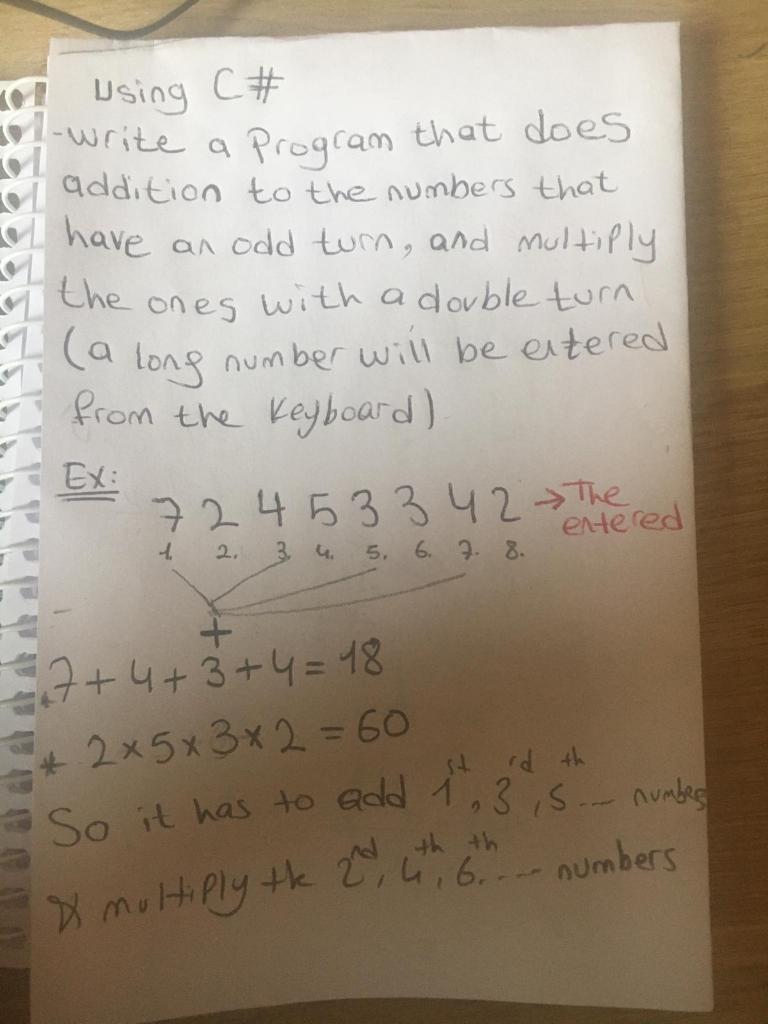 using C#
-write a Program that does
addition to the numbers that
have an odd turn, and multiply
the ones with a double turn
(a long number will be entered
from the keyboard)
Ex:
7 2 4 5 3 3 4 2 → The entered
1. 2. 3. 4. 5. 6. 7. 8.
+
7+4+3+4=18
* 2×5×3×2=60
So it has to add 1st, 3rd, 5th... number
& multiply the 2nd, 4th, 6th.... numbers